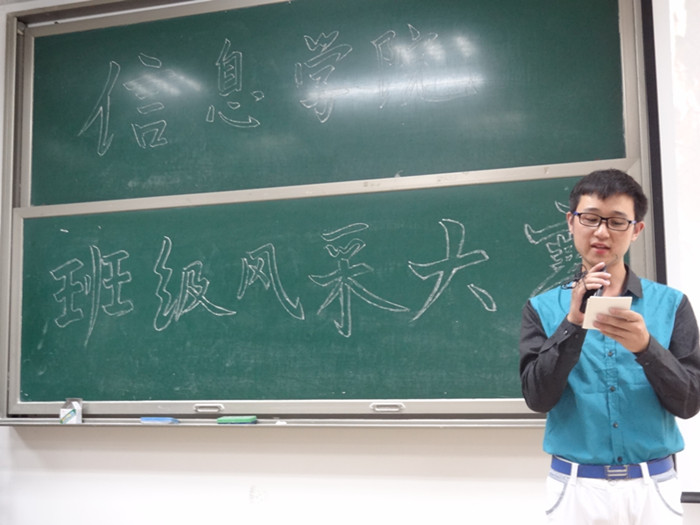 信息学院
班级风采大赛